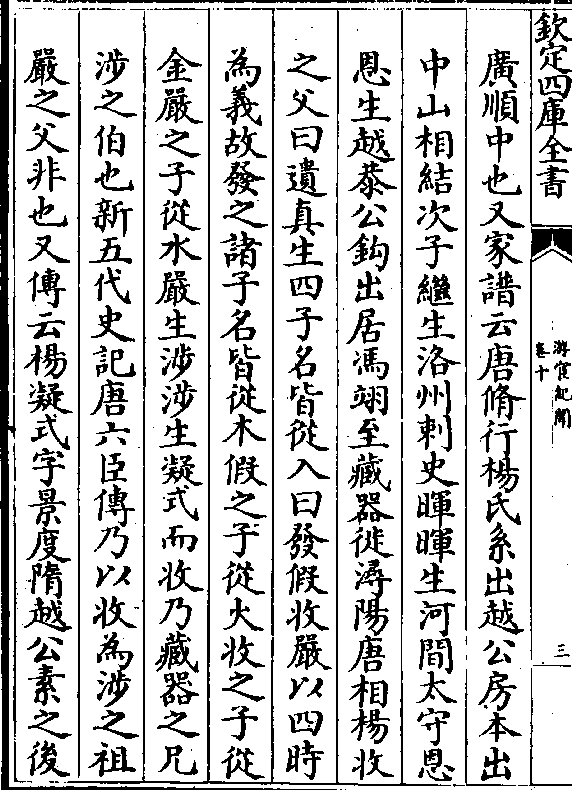 欽定四庫全書
游宦紀聞
卷十
三
廣順中也又家譜云唐脩行楊氏系出越公房本出
中山相結次子繼生洛州刺史暉暉生河間太守恩
恩生越㳟公鈞出居馮翊至藏器徙潯陽唐相楊收
之父曰遺真生四子名皆從入曰發假收嚴以四時
為義故發之諸子名皆從木假之子從火收之子從
金嚴之子從水嚴生涉涉生凝式而收乃藏器之兄
涉之伯也新五代史記唐六臣傳乃以收為涉之祖
嚴之父非也又傳云楊凝式字景度隋越公素之後